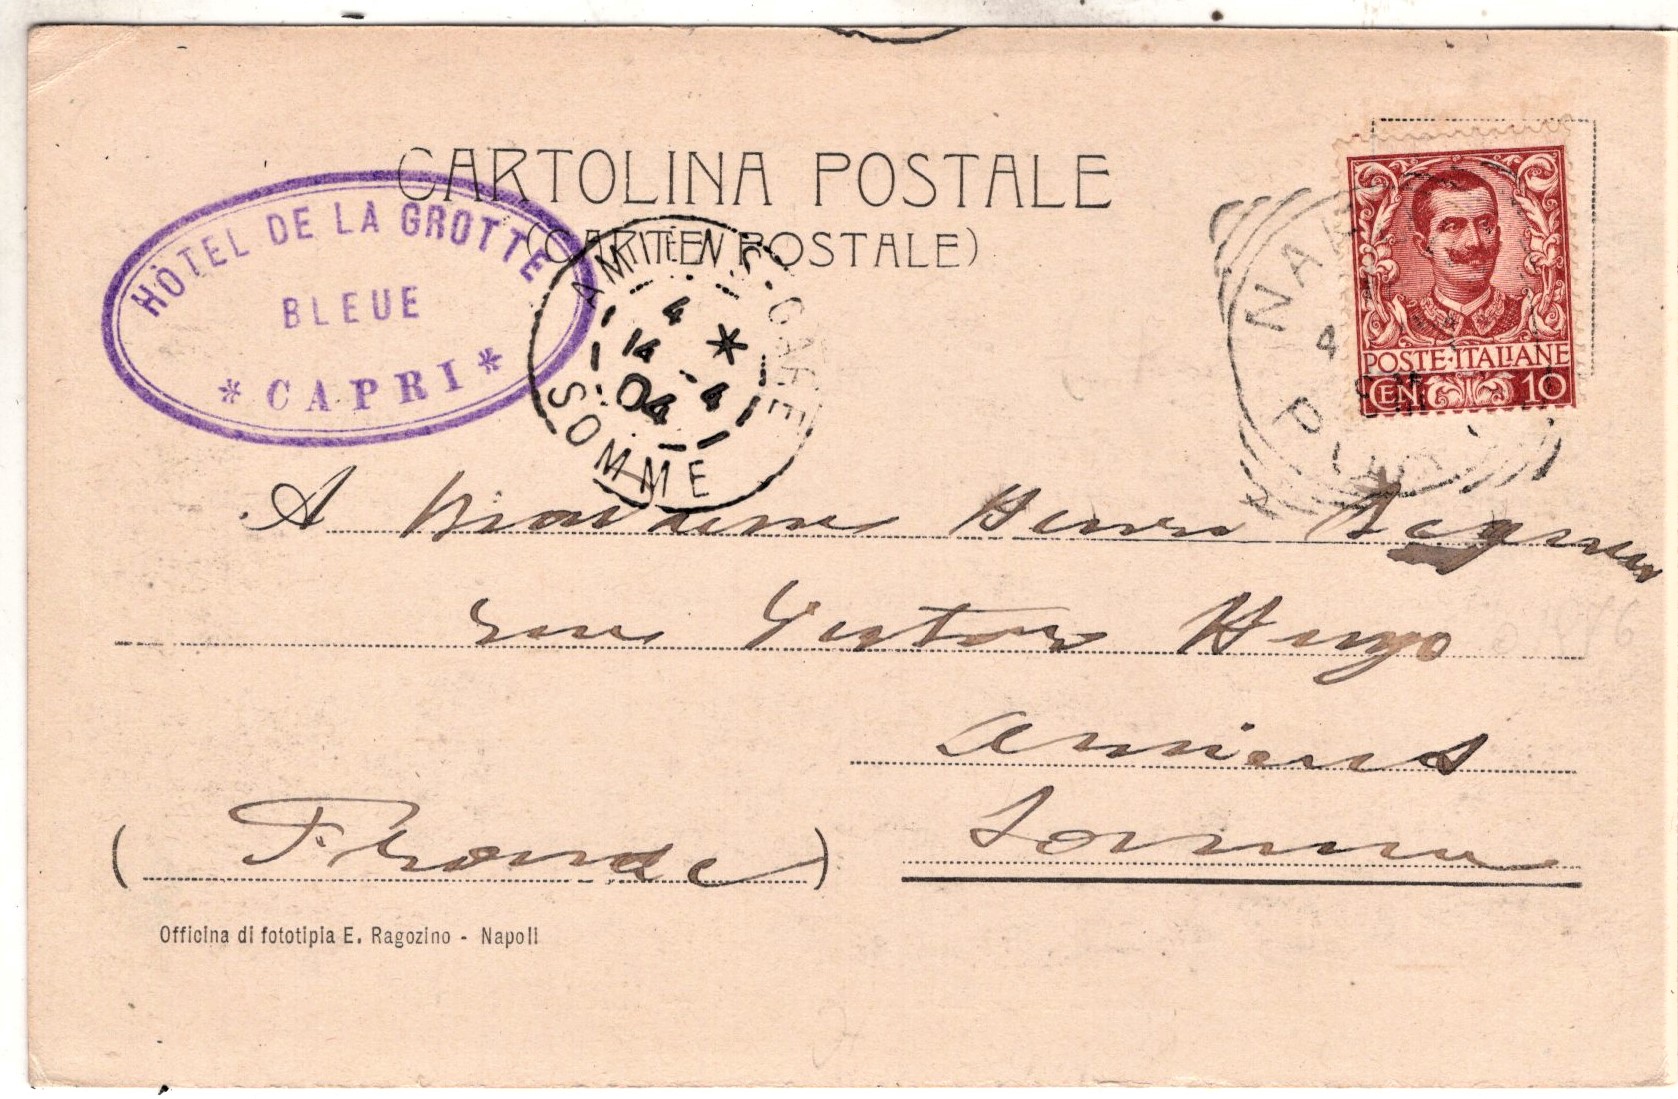 CARTOLINA POSTALE
(CARTE POSTALE)
HÒTEL DE LA GROTTE
BLEUE
* CAPRI *
AMIENS GARE
4
14 * 4
04
SOMME
NAP
4
POSTE·ITALIANE
CEN. 10
A Madame Henri
rue Victor Hugo
Amiens
Somme
(France)
Officina di fototipia E. Ragozino - Napoli